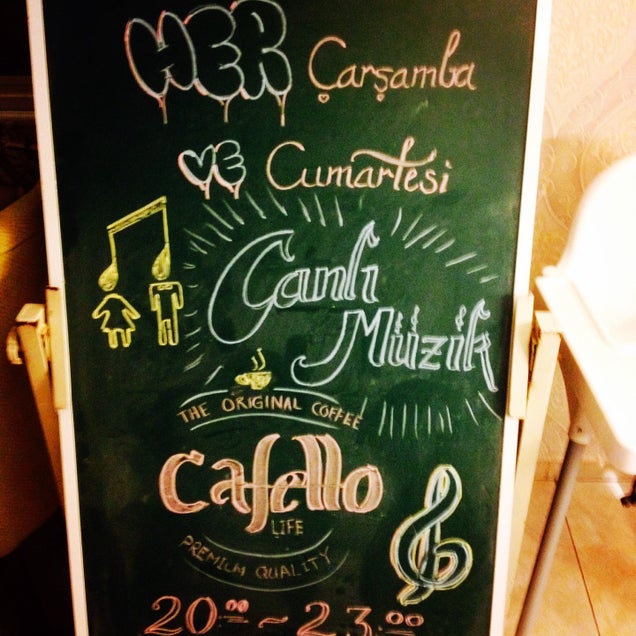 HER Çarşamba
vE Cumartesi
Canlı
Müzik
THE ORIGINAL COFFEE
Cafello
LIFE
PREMIUM QUALITY
20.00 ~ 23.00